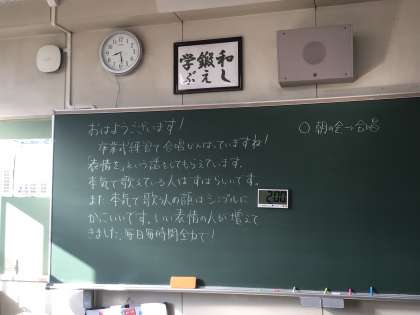 学鍛和
ぶえし
おはようございます！
卒業式練習で合唱が入っていますね！
表情を、という話をしてもらえています。
本気で歌えている人はすばらしいです。
また本気で歌う人の顔はシンプルに
かっこいいです。いい表情の人が増えて
きました。毎日毎時間全力で！
○ 朝の会→合唱
2:00